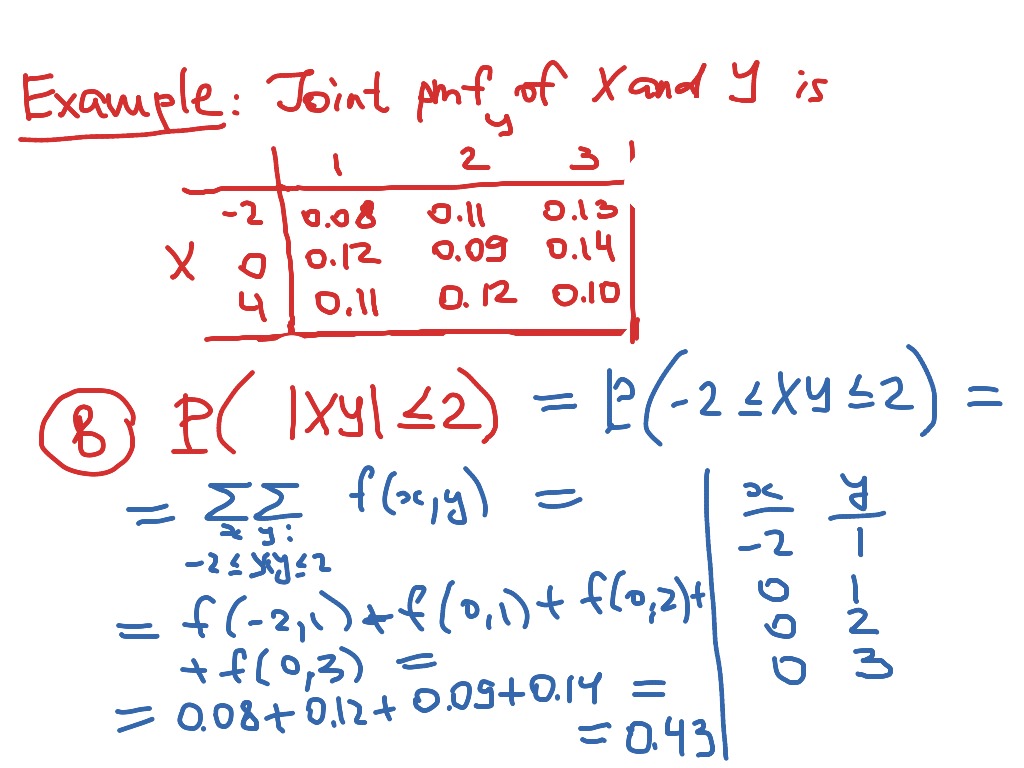 Example: Joint pmf of X and Y is
y
1 2 3
-2 0.08 0.11 0.13
X 0 0.12 0.09 0.14
4 0.11 0.12 0.10
B P(|XY| ≤ 2) = P(-2 ≤ XY ≤ 2) =
= ΣΣ f(x,y) =
x y:
-2 ≤ xy ≤ 2
= f(-2,1) + f(0,1) + f(0,2) +
+ f(0,3) =
= 0.08 + 0.12 + 0.09 + 0.14 =
= 0.43
x y
-2 1
0 1
0 2
0 3